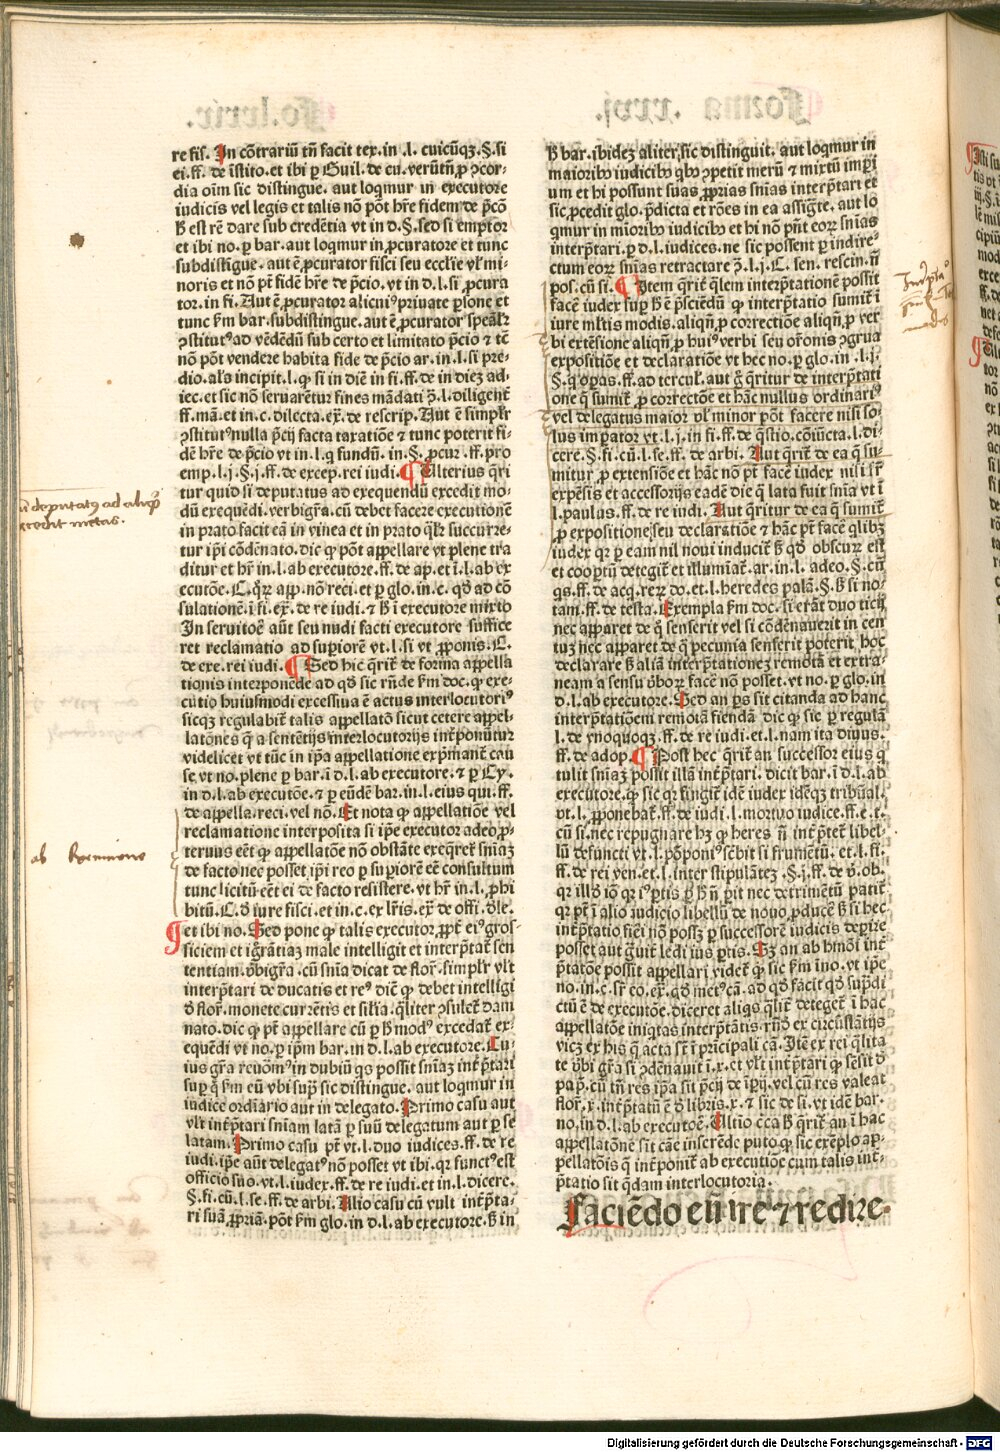 re fis. In cōtrariū tn̄ facit tex. in .l. cuicūqꝫ. §. si
ei. ff. de īstito. et ibi ꝑ Guil. de cu. verūtn̄ ꝓ ꝯcor-
dia oīm sic distingue. aut loqmur in executore
iudicis vel legis et talis nō pōt hr̄e fidem de p̄cō
ꝫ est rē dare sub credētia vt in d. §. sed si emptor
et ibi no. ꝑ bar. aut loqmur in ꝓcuratore et tunc
subdistīgue. aut ē ꝓcurator fisci seu eccl̄ie vl̓ mi-
noris et nō pōt fidē hr̄e de p̄cio. vt in .d. l. si ꝓcura
tor. in fi. Aut ē ꝓcurator alicniꝰ priuate ꝑsone et
tunc k̄m bar. subdistingue. aut ē ꝓcurator spealr̄
ꝯstitutꝰ ad vēdēdū sub certo et limitato p̄cio ⁊ tc̄
nō pōt vendere habita fide de p̄cio ar. in .l. si pre-
dio. al̓s incipit. l. ꝙ si in diē in fi. ff. de in diez ad-
iec. et sic nō seruaretur fines mādati ꝓ. l. diligent̓
ff. mā. et in .c. dilecta. ex̄. de rescrip. Aut ē simpl̓r
ꝯstitutꝰ nulla p̄cij facta taxatiōe ⁊ tunc poterit fi-
dē hr̄e de p̄cio vt in .l. q fundū. in. §. ꝓcur. ff. pro
emp. l. j. §. j. ff. de excep. rei iudi. ¶ Ulterius qri
tur quid si deputatus ad exequendū excedit mo-
dū exequēdi. verbigr̄a. cū debet facere executionē
in prato facit eā in vinea et in prato ql̓r succurre-
tur ip̄i cōdēnato. dic ꝙ pōt appellare vt plene tra
ditur et hr̄ in .l. ab executore. ff. de ap. et ī .l. ab ex
ecutōe. C. qr̄ꝫ app. nō reci. et ꝑ glo. in .c. qd̓ ad cō
sulationē. ī fi. ex̄. de re iudi. ⁊ ꝫ ī executore mixto
In seruitoē aūt seu nudi facti executore suffice
ret reclamatio ad suꝑiorē vt .l. si vt ꝓponis. C.
de exe. rei iudi. ¶ Sed hic qrit̓ de forma appella
tionis interponēde ad qd̓ sic rn̄de k̄m doc. ꝙ exe-
cutio huiusmodi excessiua ē actus interlocutoriꝰ
sicqꝫ regulabit̓ talis appellatō sicut cetere appel-
latōnes q̄ a sentētijs interlocutorijs int̓ponūtur
videlicet vt tūc in ip̄a appellatione exp̄mant̓ cau
se. vt no. plene ꝑ bar. ī d. l. ab executore. ⁊ ꝑ Cy.
in d. l. ab executōe. ⁊ ꝑ eūdē bar. in .l. eius qui. ff.
de appella. reci. vel nō. Et nota ꝙ appellatiōe vel
reclamatione interposita si ip̄e executor adeo ꝓ-
teruus eēt ꝙ appellatōe nō obstāte exeqret̓ sn̄iaꝫ
de facto nec posset ip̄i reo ꝑ suꝑiorē eē consultum
tunc licitū eēt ei de facto resistere. vt hr̄ in .l. ꝓhi
bitū. C. d̓ iure fisci. et in .c. ex lr̄is. ex̄. de offi. d̓le.
et ibi no. Sed pone ꝙ talis executor ꝓpt̓ eiꝰ gros-
siciem et igr̄atiaꝫ male intelligit et interp̄tat̓ sen
tentiam. v̓bigr̄a. cū sn̄ia dicat de flor̄. simpl̓r vl̓t
interp̄tari de ducatis et reꝰ diē ꝙ debet intelligi
d̓ flor̄. monete currētis et sil̓ia. ql̓iter ꝯsulet̓ dam
nato. dic ꝙ pt̓ appellare cū ꝑ ꝫ modꝰ excedat̓ ex-
equēdi vt no. ꝑ ip̄m bar. in d. l. ab executore. Cu-
ius gr̄a reuōmꝰ in dubiū qs possit sn̄iaꝫ int̓p̄tari
suꝑ q k̄m eū vbi supͣ sic distingue. aut loqmur in
iudice ordīario aut in delegato. Primo casu aut
vl̓t int̓p̄tari sniam latā ꝑ suū delegatum aut ꝑ se
latam. Primo casu pt̓ vt. l. duo iudices. ff. de re
iudi. ip̄e aūt delegatꝰ nō posset vt ibi. qꝛ functꝰ est
officio suo. vt l. iudex. ff. de re iudi. et in .l. dicere.
§. fi. cū .l. se. ff. de arbi. Alio casu cū vult int̓p̄ta-
ri suā ꝓpriā. pōt k̄m glo. in d. l. ab executore. ꝫ in
ꝫ bar. ibideꝫ aliter sic distinguit. aut loqmur in
maioribꝰ iudicibꝰ qbꝰ ꝯpetit merū ⁊ mixtū imꝑi
um et hi possunt suas ꝓprias sn̄ias interp̄tari et
sic ꝓcedit glo. p̄dicta et rōes in ea assigte. aut lo
qmur in mīoribꝰ iudicibꝰ et hi nō pn̄t eoꝝ sn̄ias
interp̄tari. ꝑ d. l. iudices. ne sic possent ꝑ indire-
ctum eoꝝ sn̄ias retractare ꝯ̄. l. j. C. sen. rescin. n̄
pos. cū si. ¶ Item qrit̓ q̄lem interp̄tationē possit
facē iudex suꝑ ꝫ ē p̄sciēdū ꝙ interp̄tatio sumit̓ ī
iure ml̓tis modis. aliqn̄ ꝓ correctiōe aliqn̄ ꝓ ver
bi extēsione aliqn̄ ꝓ huiꝰ verbi seu or̄onis ꝯgrua
expositiōe et declaratiōe vt hec no. ꝑ glo. in .l. j.
§. q oꝑas. ff. ad tercul̓. aut g̓ qritur de interp̄tati
one q̄ sumit̓ ꝓ correctōe et hāc nullus ordinariꝰ
vel delegatus maior vl̓ minor pōt facere nisi so-
lus imꝑator vt. l. j. in fi. ff. de q̄stio. cōiūcta. l. di-
cere. §. fi. cū. l. se. ff. de arbi. Aut qrit̓ de ea q̄ su-
mitur ꝓ extensiōe et hāc nō pt̓ facē iudex nisi sr̄
expēsis et accessorijs eadē die q̄ lata fuit sn̄ia vt ī
l. paulus. ff. de re iudi. Aut qritur de ea q̄ sumit̓
ꝓ expositiōe seu declaratiōe ⁊ hāc pt̓ facē qlibꝫ
iudex qꝛ ꝑ eam nil noui inducit̓ ꝫ qd̓ obscurꝫ est
et cooꝑtū detegit̓ et illumīat̓. ar. in .l. adeo. §. cū
qs. ff. de acq. reꝝ do. et .l. heredes palā. §. ꝫ si no-
tam. ff. de testa. Exempla k̄m doc. si erāt duo ticij
nec apparet de q̄ senserit vel si cōdēnauerit in cen
tuꝫ nec apparet de q̄ pecunia senserit poterit hoc
declarare ꝫ aliā interp̄tationeꝫ remotā et extra-
neam a sensu v̓boꝝ facē nō posset. vt no. ꝑ glo. in
d. l. ab executore. Sed an ꝑs sit citanda ad hanc
interp̄tatiōem remotā fiendā dic ꝙ sic ꝑ regulā
l. de vnoquoqꝫ. ff. de re iudi. et .l. nam ita diuus.
ff. de adop. ¶ Post hec qrit̓ an successor eius q
tulit sn̄iaꝫ possit illā int̓p̄tari. dicit bar. ī d. l. ab
executore. ꝙ sic qꝛ fingit̓ idē iudex idēqꝫ tribūal.
vt .l. ꝓponebat̓. ff. de iudi. l. mortuo iudice. ff. e. t.
cū si. nec repugnare hꝫ ꝙ heres n̄ int̓p̄tet̓ libel-
lū defuncti vt .l. pōponiꝰ sc̄bit si frumētū. et .l. fi.
ff. de rei ven. et .l. inter stipulātez. §. j. ff. de v̓. ob.
qꝛ illd̓ iō qꝛ iꝰ ptis ꝫ ꝫ n̄ ꝑit nec detrimētū patit̓
qꝛ pt̓ ī alio iudicio libellū de nouo ꝓducē ꝫ si hec
int̓p̄tatio fieri nō possꝫ ꝑ successorē iudicis deꝑire
posset aut g̓uit̓ ledi ius ptis. Sꝫ an ab hmōi int̓
p̄tatōe possit appellari videt̓ ꝙ sic k̄m īno. vt ip̄e
no. in .c. sr̄ eo. ex̄. qd̓ metꝰ cā. ad qd̓ facit qd̓ sup̄di
ctū ē de executōe. diceret aliqs ql̓it̓ deteget̓ ī hac
appellatōe iniqtas interp̄tātis. rn̄d̓ ex circūstātijs
vicꝫ ex his q̄ acta st̄ ī prīcipali cā. Itē ex rei q̄lita
te v̓bi gr̄a si ꝯdēnauit ī .x. et vl̓t int̓p̄tari ꝙ sēsit d̓
pap̄. cū tn̄ res ip̄a sit p̄cij de īꝑij. vel cū res valeat
flor̄. x. int̓p̄tatū ē d̓ libris. x. ⁊ sic de si. vt idē bar.
no. in d. l. ab executoē. Ultīo cc̄a ꝫ qrit̓ an ī hac
appellatōne sit cāe inserēde puto ꝙ sic exēplo ap-
pellatōis q̄ int̓ponit̓ ab executiōe cum talis int̓-
p̄tatio sit qdam interlocutoria.
Faciēdo eū ire ⁊ redire.
Digitalisierung gefördert durch die Deutsche Forschungsgemeinschaft - DFG